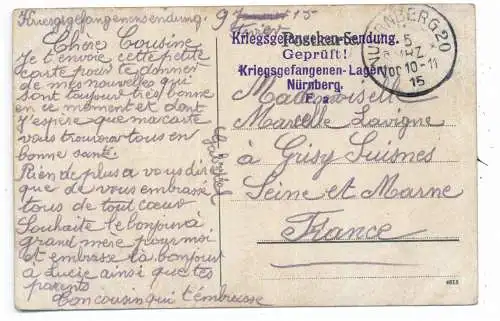 Kriegsgefangenensendung.
9 Janvier 15
Février
Chère Cousine
Je t'envoie cette petite
carte pour te donner
de mes nouvelles qui
sont toujour très bonne
en ce moment et dont
j'espère que ma carte
vous trouvera tous en
bonne santé.
Rien de plus a vous dire
que de vous embrasse
tous de tout cœur
Souhaite le bonjour à
grand mère pour moi
et embrasse la bonjour
a Lucie ainsi que tes
parents
Ton cousin qui t'embrasse
Postkarte
Kriegsgefangenen-Sendung.
Geprüft!
Kriegsgefangenen-Lager
Nürnberg.
F. a
NÜRNBERG 20
5
MRZ
Vor 10-11
15
Mademoiselle
Marcelle Lavigne
à Grisy Suisnes
Seine et Marne
France